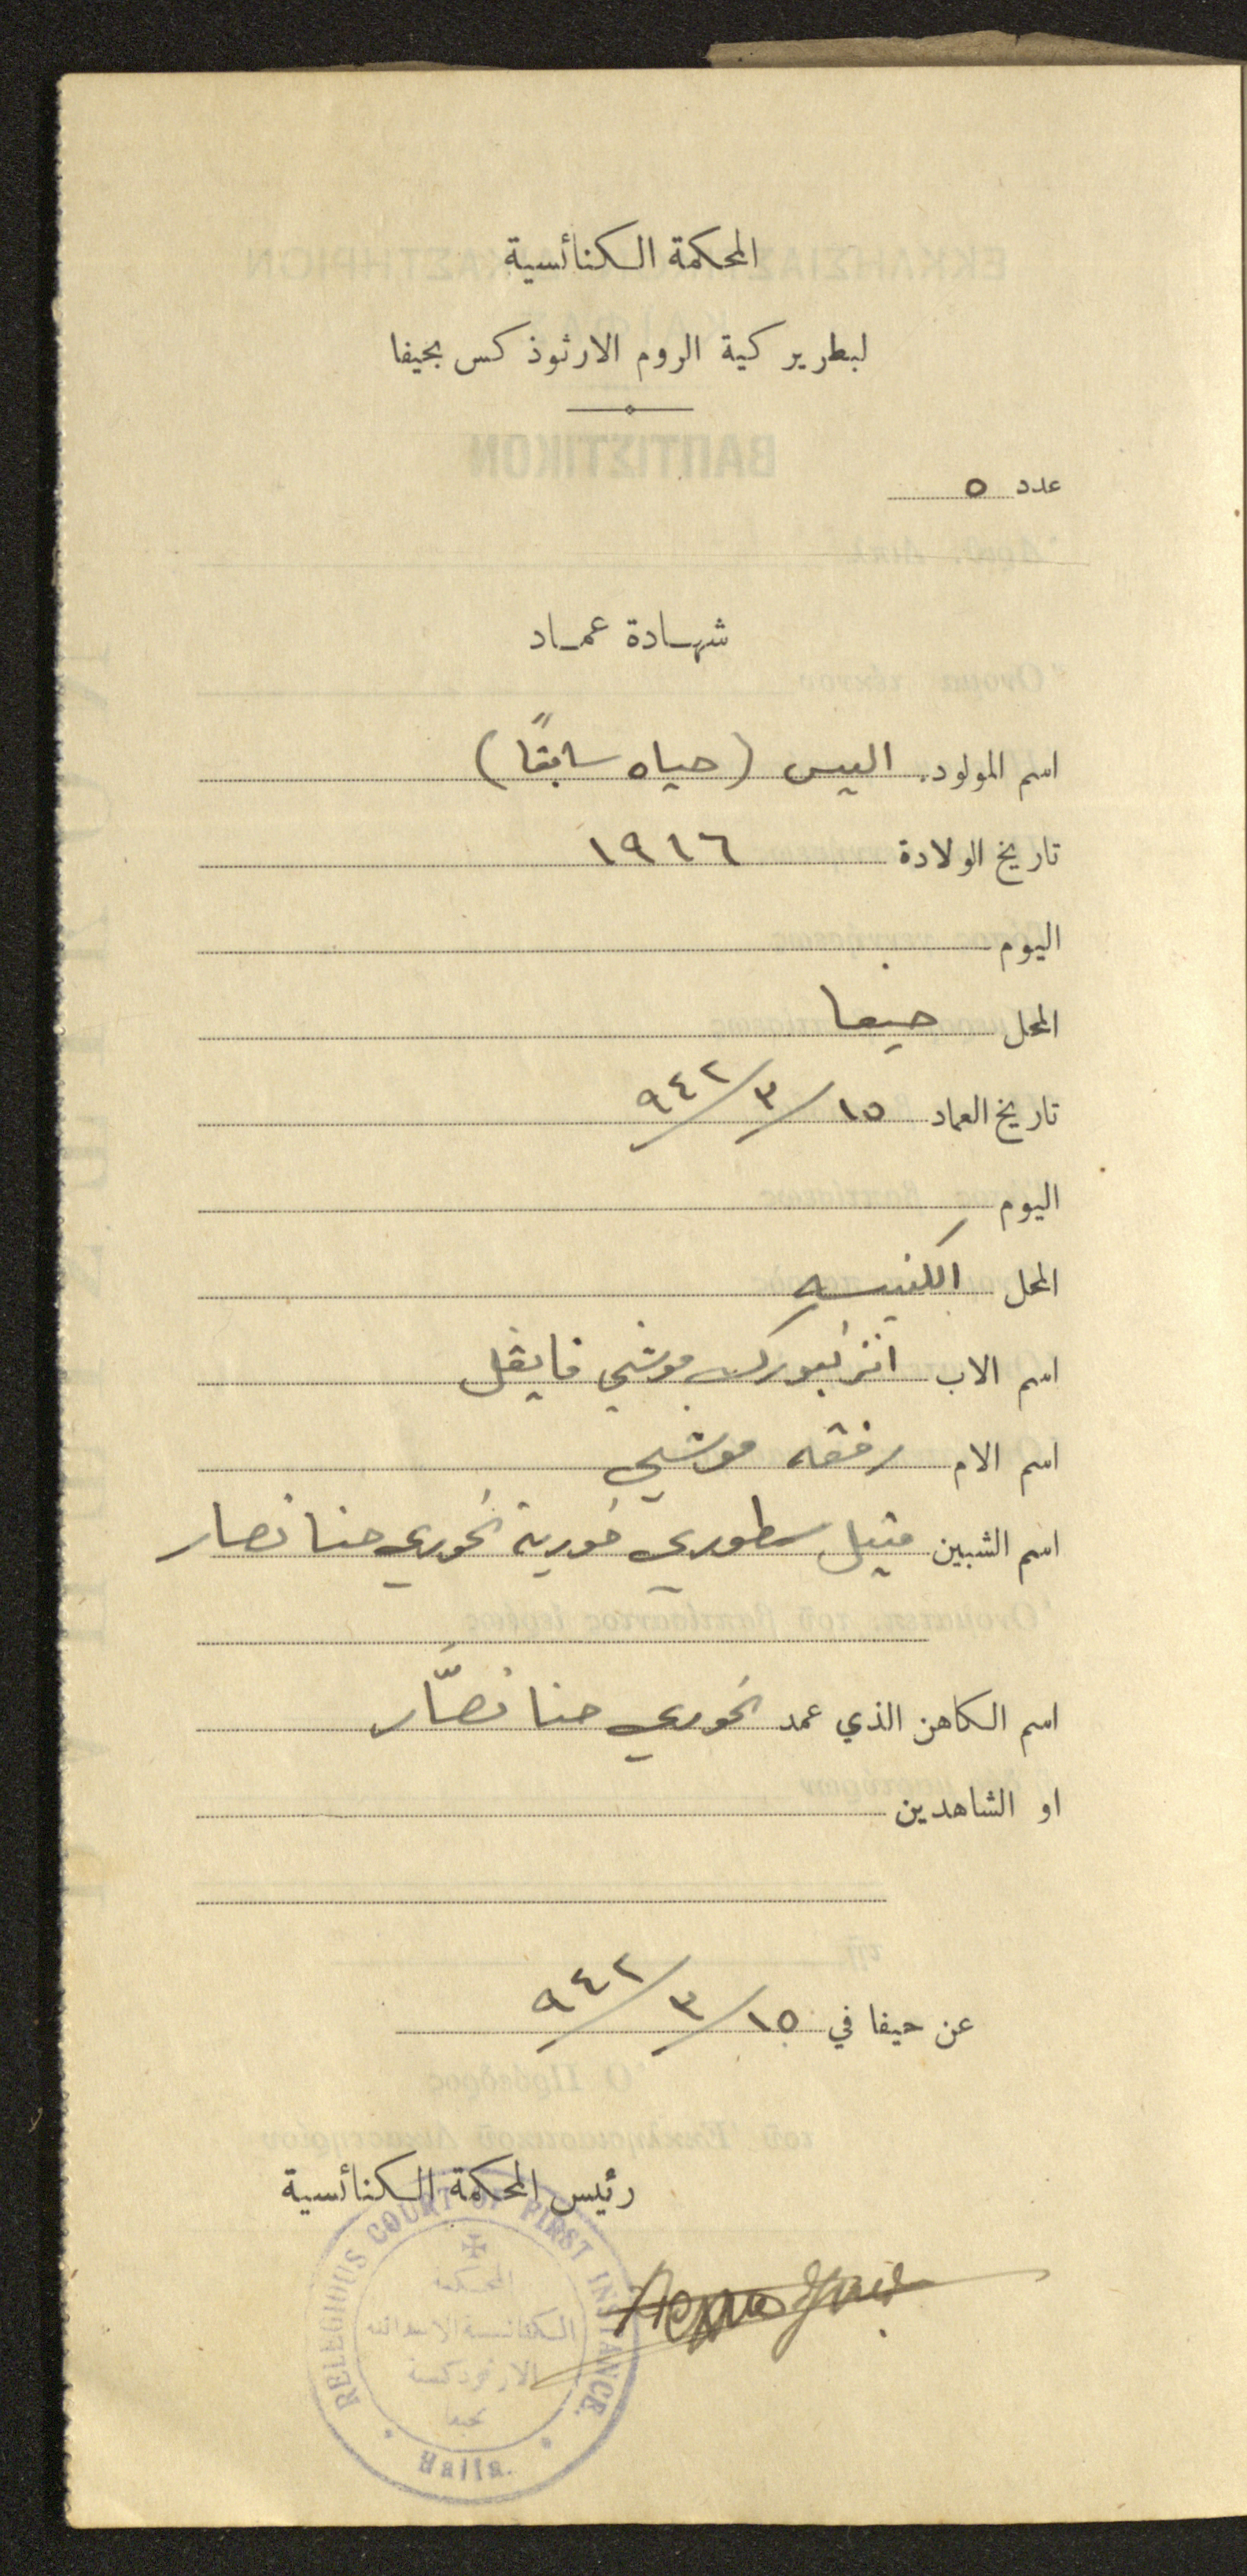 المحكمة الكنائسية
لبطرير كية الروم الارثوذ كس بحيفا
عدد ٥
شهادة عماد
اسم المولود. اليس (حياه سابقاً)
تاريخ الولادة ١٩١٦
اليوم
المحل حيفا
تاريخ العماد ١٥/٣/٩٤٢
اليوم
المحل الكنيسه
اسم الاب موشي فايفل
اسم الام رفقه موشي
اسم الشبين متيل سطوري خورية الخوري حنا نصار
اسم الكاهن الذي عمد الخوري حنا نصّار
او الشاهدين
عن حيفا في ١٥/٣/٩٤٢
رئيس المحكمة الكنائسية
RELEGIOUS COURT OF FIRST INSTANCE.
المحكمة
الكنائسية الابتدائية
الارثوذكسية
بحيفا
Haifa.